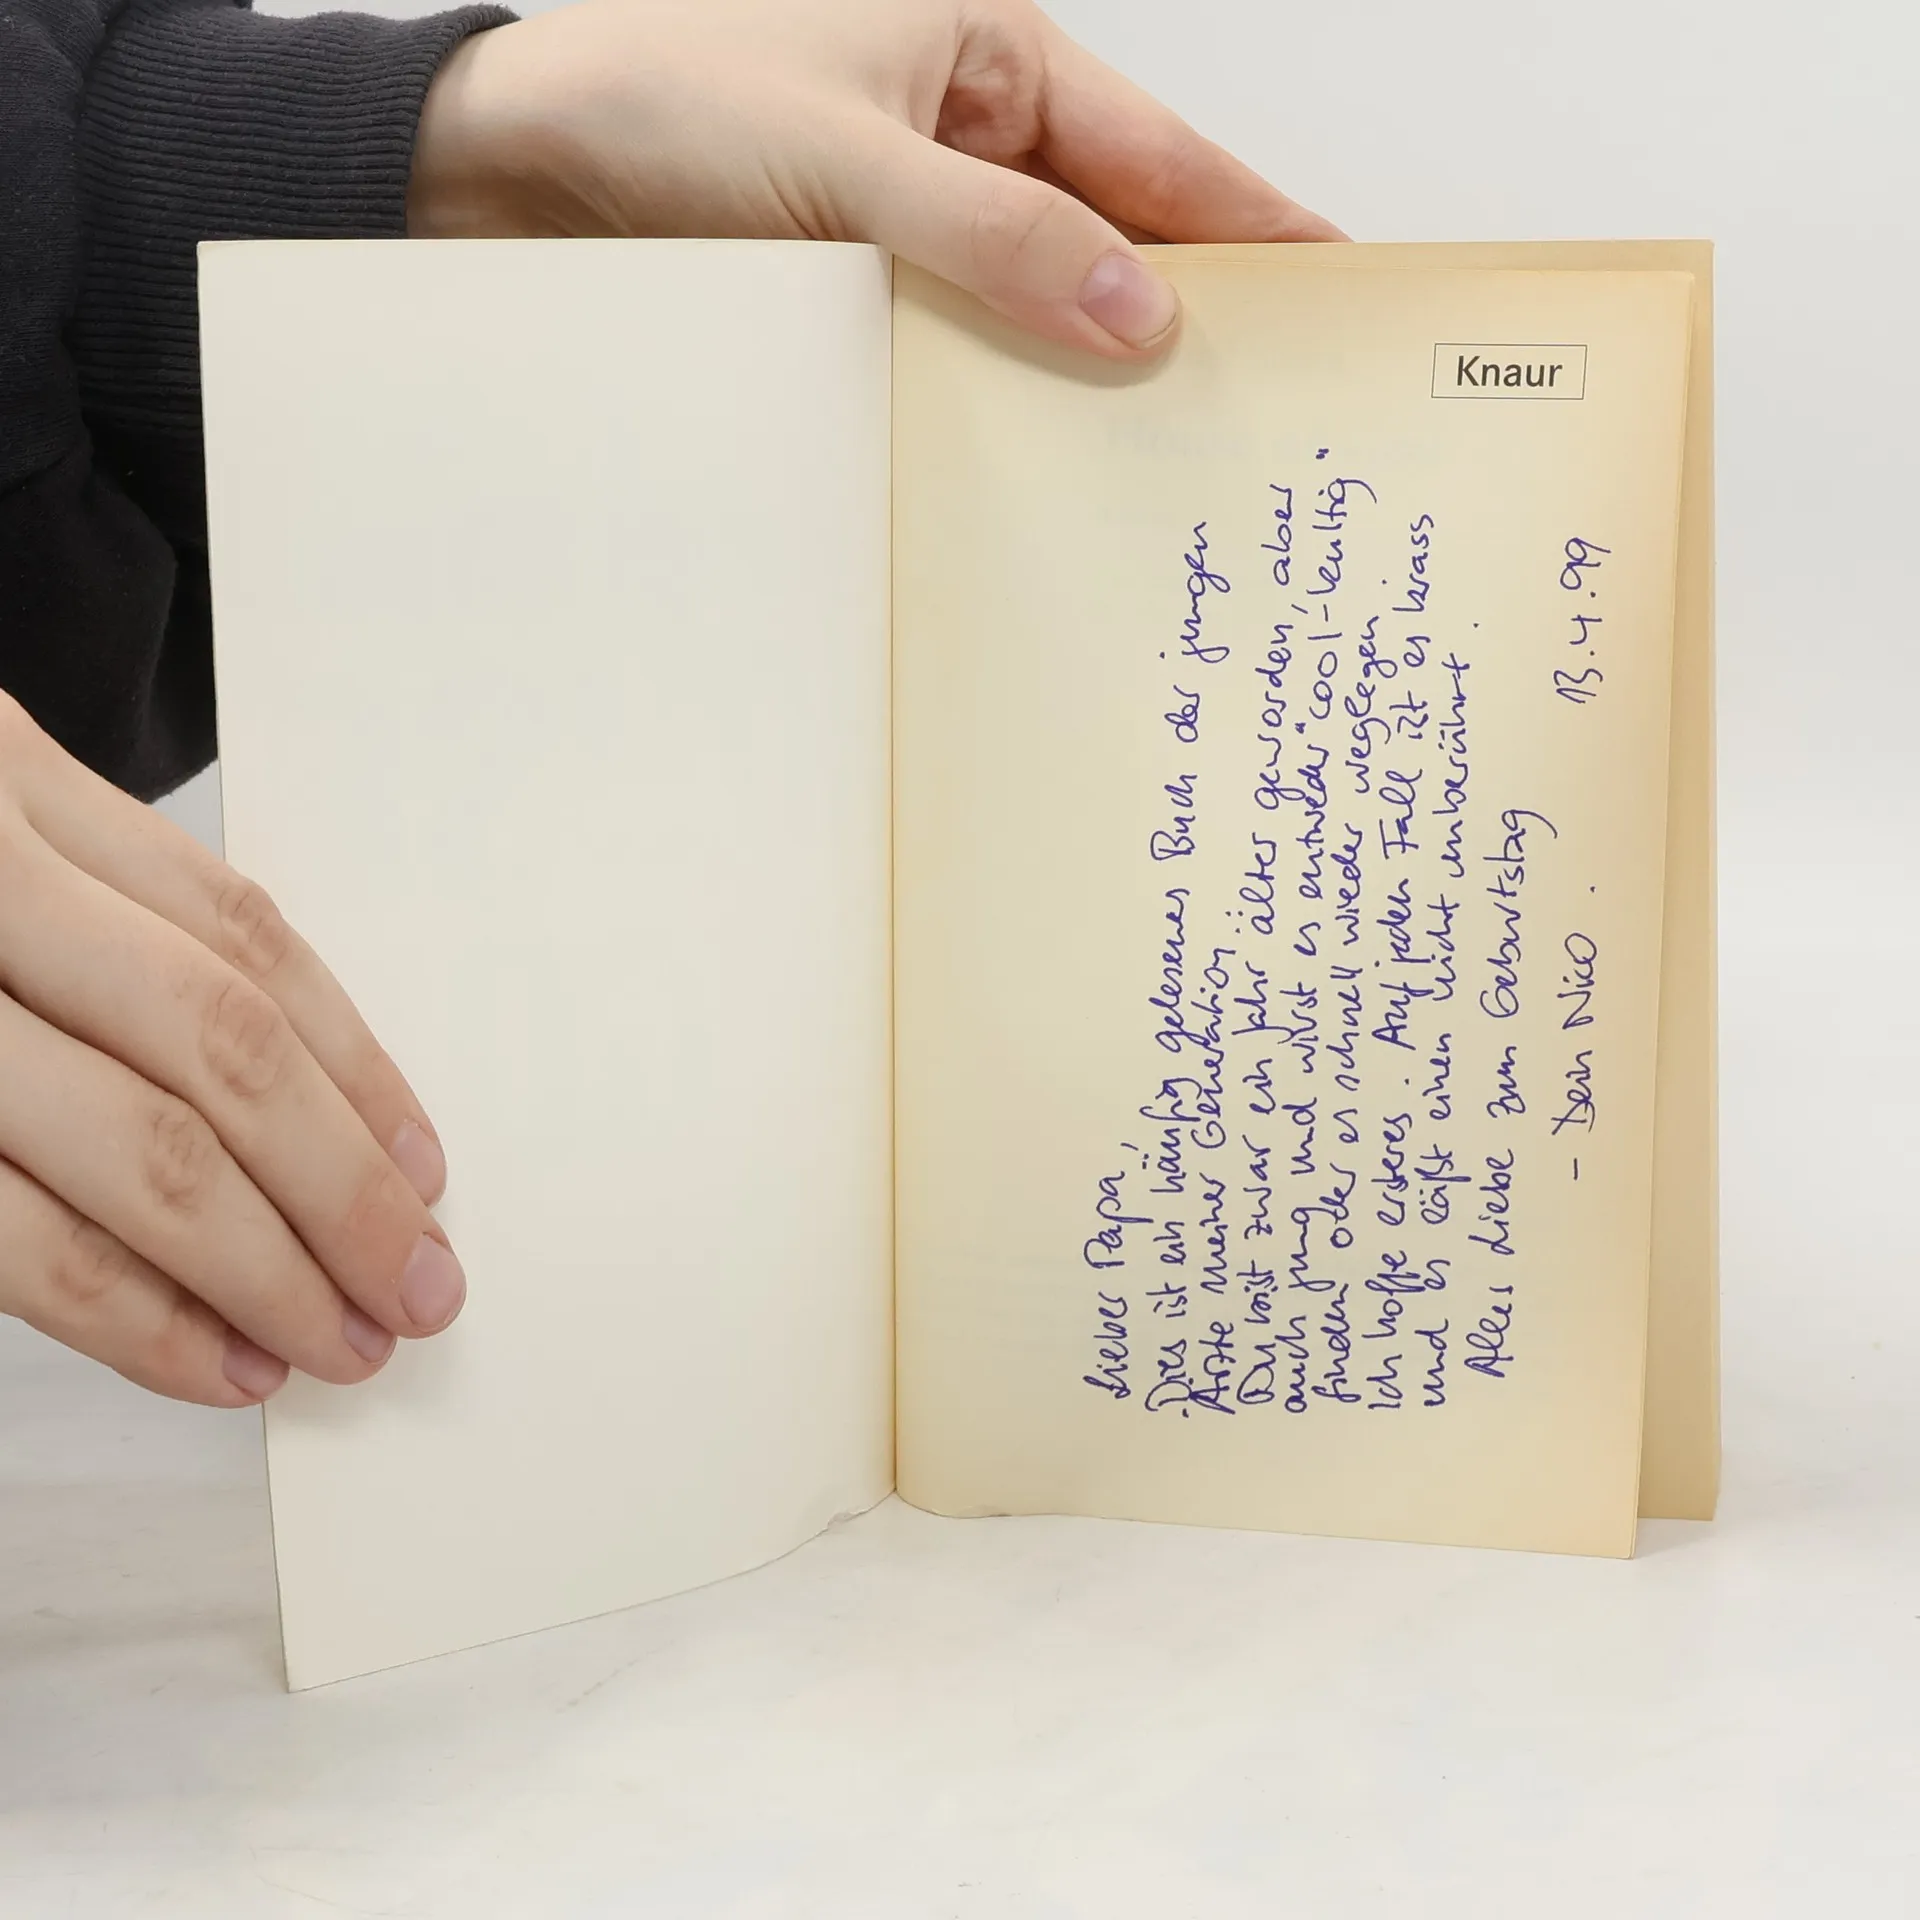 Knaur
Lieber Papa,
Dies ist ein häufig gelesenes Buch der jungen
Ärzte meiner Generation.
Du bist zwar ein Jahr älter geworden, aber
auch jung und wirst es entweder "cool-kultig"
finden oder es schnell wieder weglegen.
Ich hoffe ersteres. Auf jeden Fall ist es krass
und es läßt einen nicht unberührt.
Alles Liebe zum Geburtstag
- Dein Nico. 13.4.99